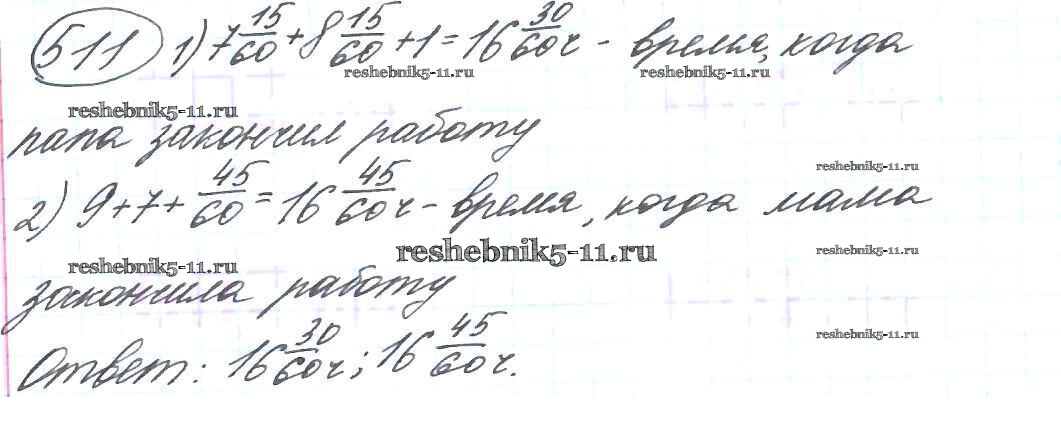 511 1) 7 15/60 + 8 15/60 + 1 = 16 30/60 ч - время, когда
reshebnik5-11.ru reshebnik5-11.ru
reshebnik5-11.ru
папа закончил работу
reshebnik5-11.ru
2) 9 + 7 + 45/60 = 16 45/60 ч - время, когда мама
reshebnik5-11.ru reshebnik5-11.ru
reshebnik5-11.ru
закончила работу
reshebnik5-11.ru
Ответ: 16 30/60 ч; 16 45/60 ч.